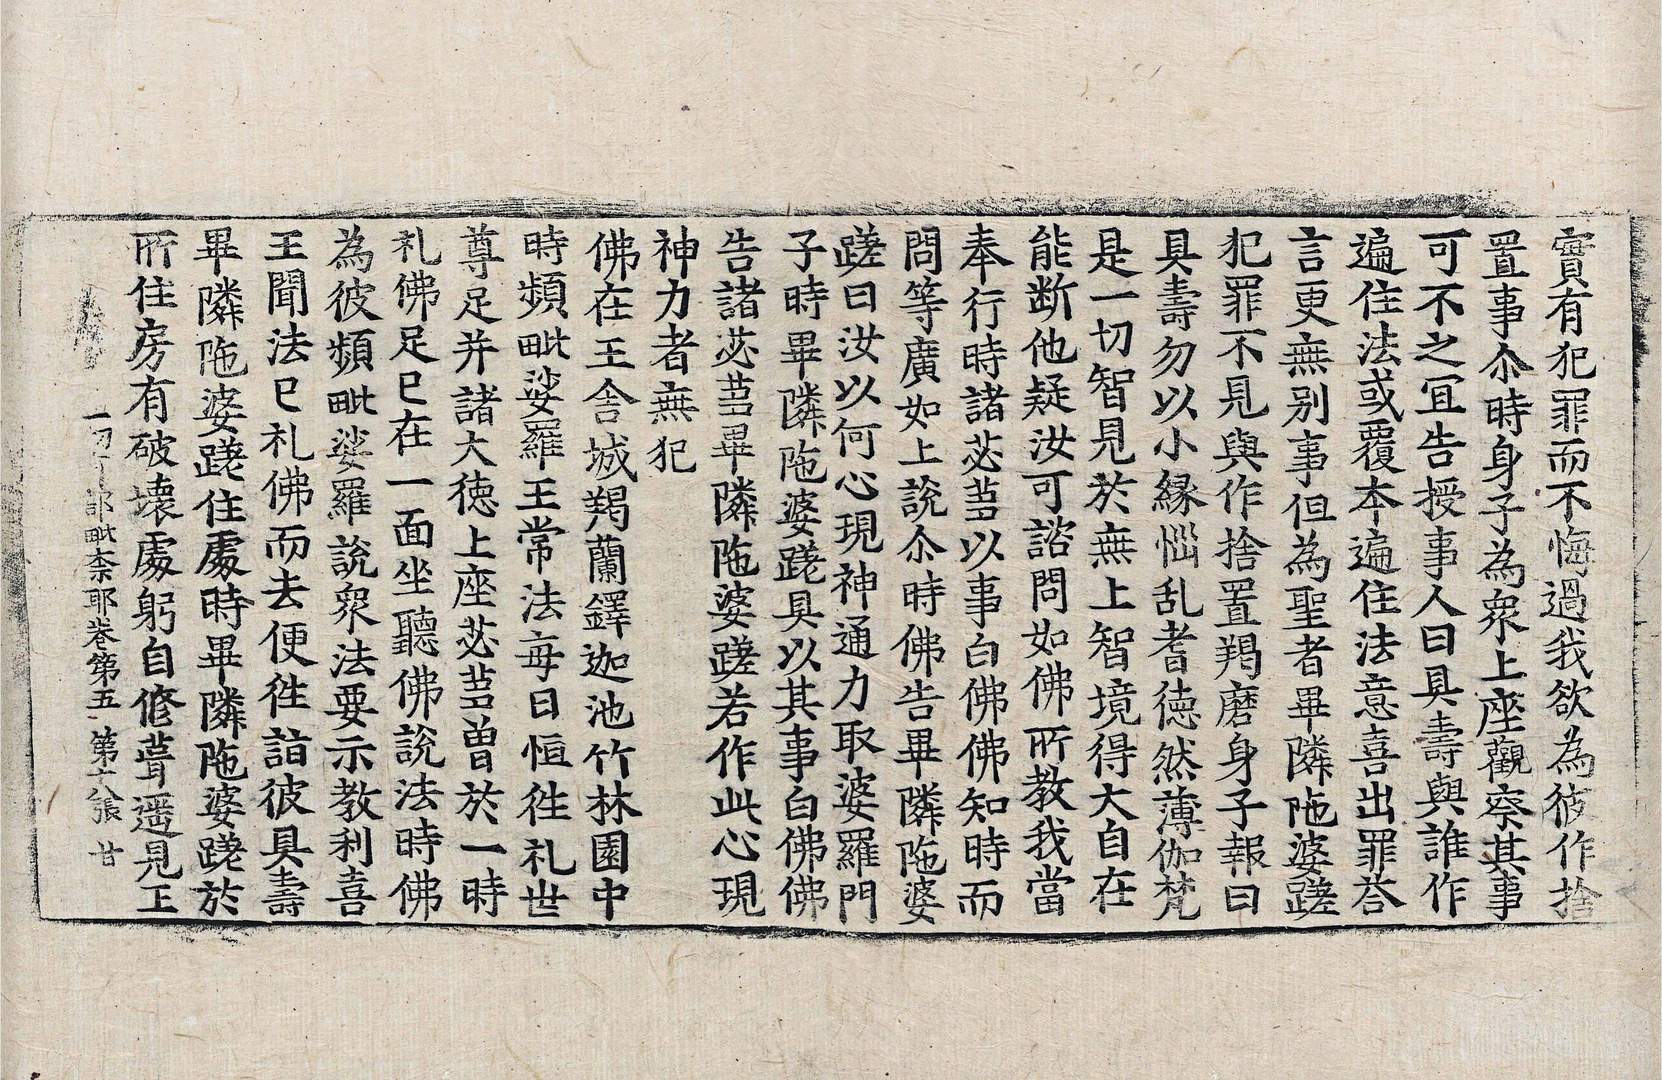 實有犯罪而不悔過我欲為彼作捨
置事尒時身子為衆上座觀察其事
可不之冝告授事人曰具壽與誰作
遍住法或覆本遍住法意喜出罪荅
言更無別事但為聖者畢隣陁婆蹉
犯罪不見與作捨置羯磨身子報曰
具壽勿以小縁惱乱耆德然薄伽梵
是一切智見於無上智境得大自在
能断他疑汝可諮問如佛所教我當
奉行時諸苾芻以事白佛佛知時而
問等廣如上說尒時佛告畢隣陁婆
蹉曰汝以何心現神通力取婆羅門
子時畢隣陁婆蹉具以其事白佛佛
告諸苾芻畢隣陁婆蹉若作此心現
神力者無犯
佛在王舍城羯蘭鐸迦池竹林園中
時頻毗娑羅王常法每日恒徃礼世
尊足并諸大德上座苾芻曾於一時
礼佛足已在一面坐聽佛說法時佛
為彼頻毗娑羅說衆法要示教利喜
王聞法已礼佛而去便徃詣彼具壽
畢隣陁婆蹉住處時畢隣陁婆蹉於
所住房有破壞處躬自修葺遥見王
一切 部毗柰耶卷第五 第十八張 甘